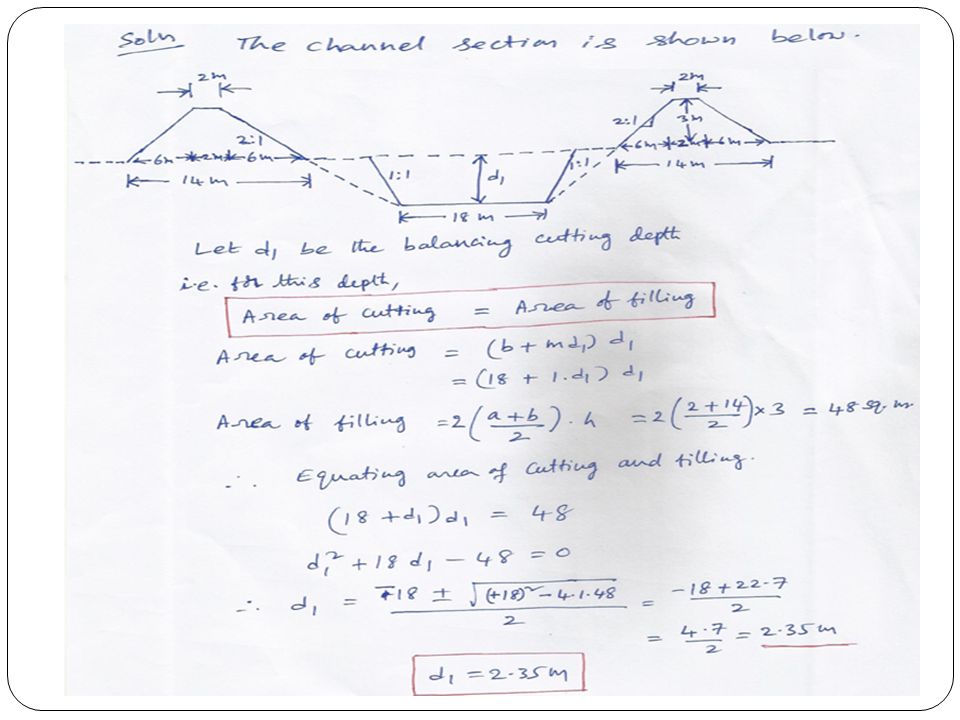 Soln The channel section is shown below.
2m 2m
2:1 2:1 3m
6m 2m 6m 1:1 d₁ 1:1 6m 2m 6m
14m 14m
18 m
Let d₁ be the balancing cutting depth
i.e. for this depth,
Area of cutting = Area of filling
Area of cutting = (b + md₁) d₁
= (18 + 1.d₁) d₁
Area of filling = 2 ( a+b / 2 ) . h = 2 ( 2+14 / 2 ) × 3 = 48 sq. m
∴ Equating area of cutting and filling.
(18 + d₁) d₁ = 48
d₁² + 18 d₁ - 48 = 0
∴ d₁ = -18 ± √(+18)² - 4.1.48 / 2 = -18 + 22.7 / 2
= 4.7 / 2 = 2.35 m
d₁ = 2.35 m